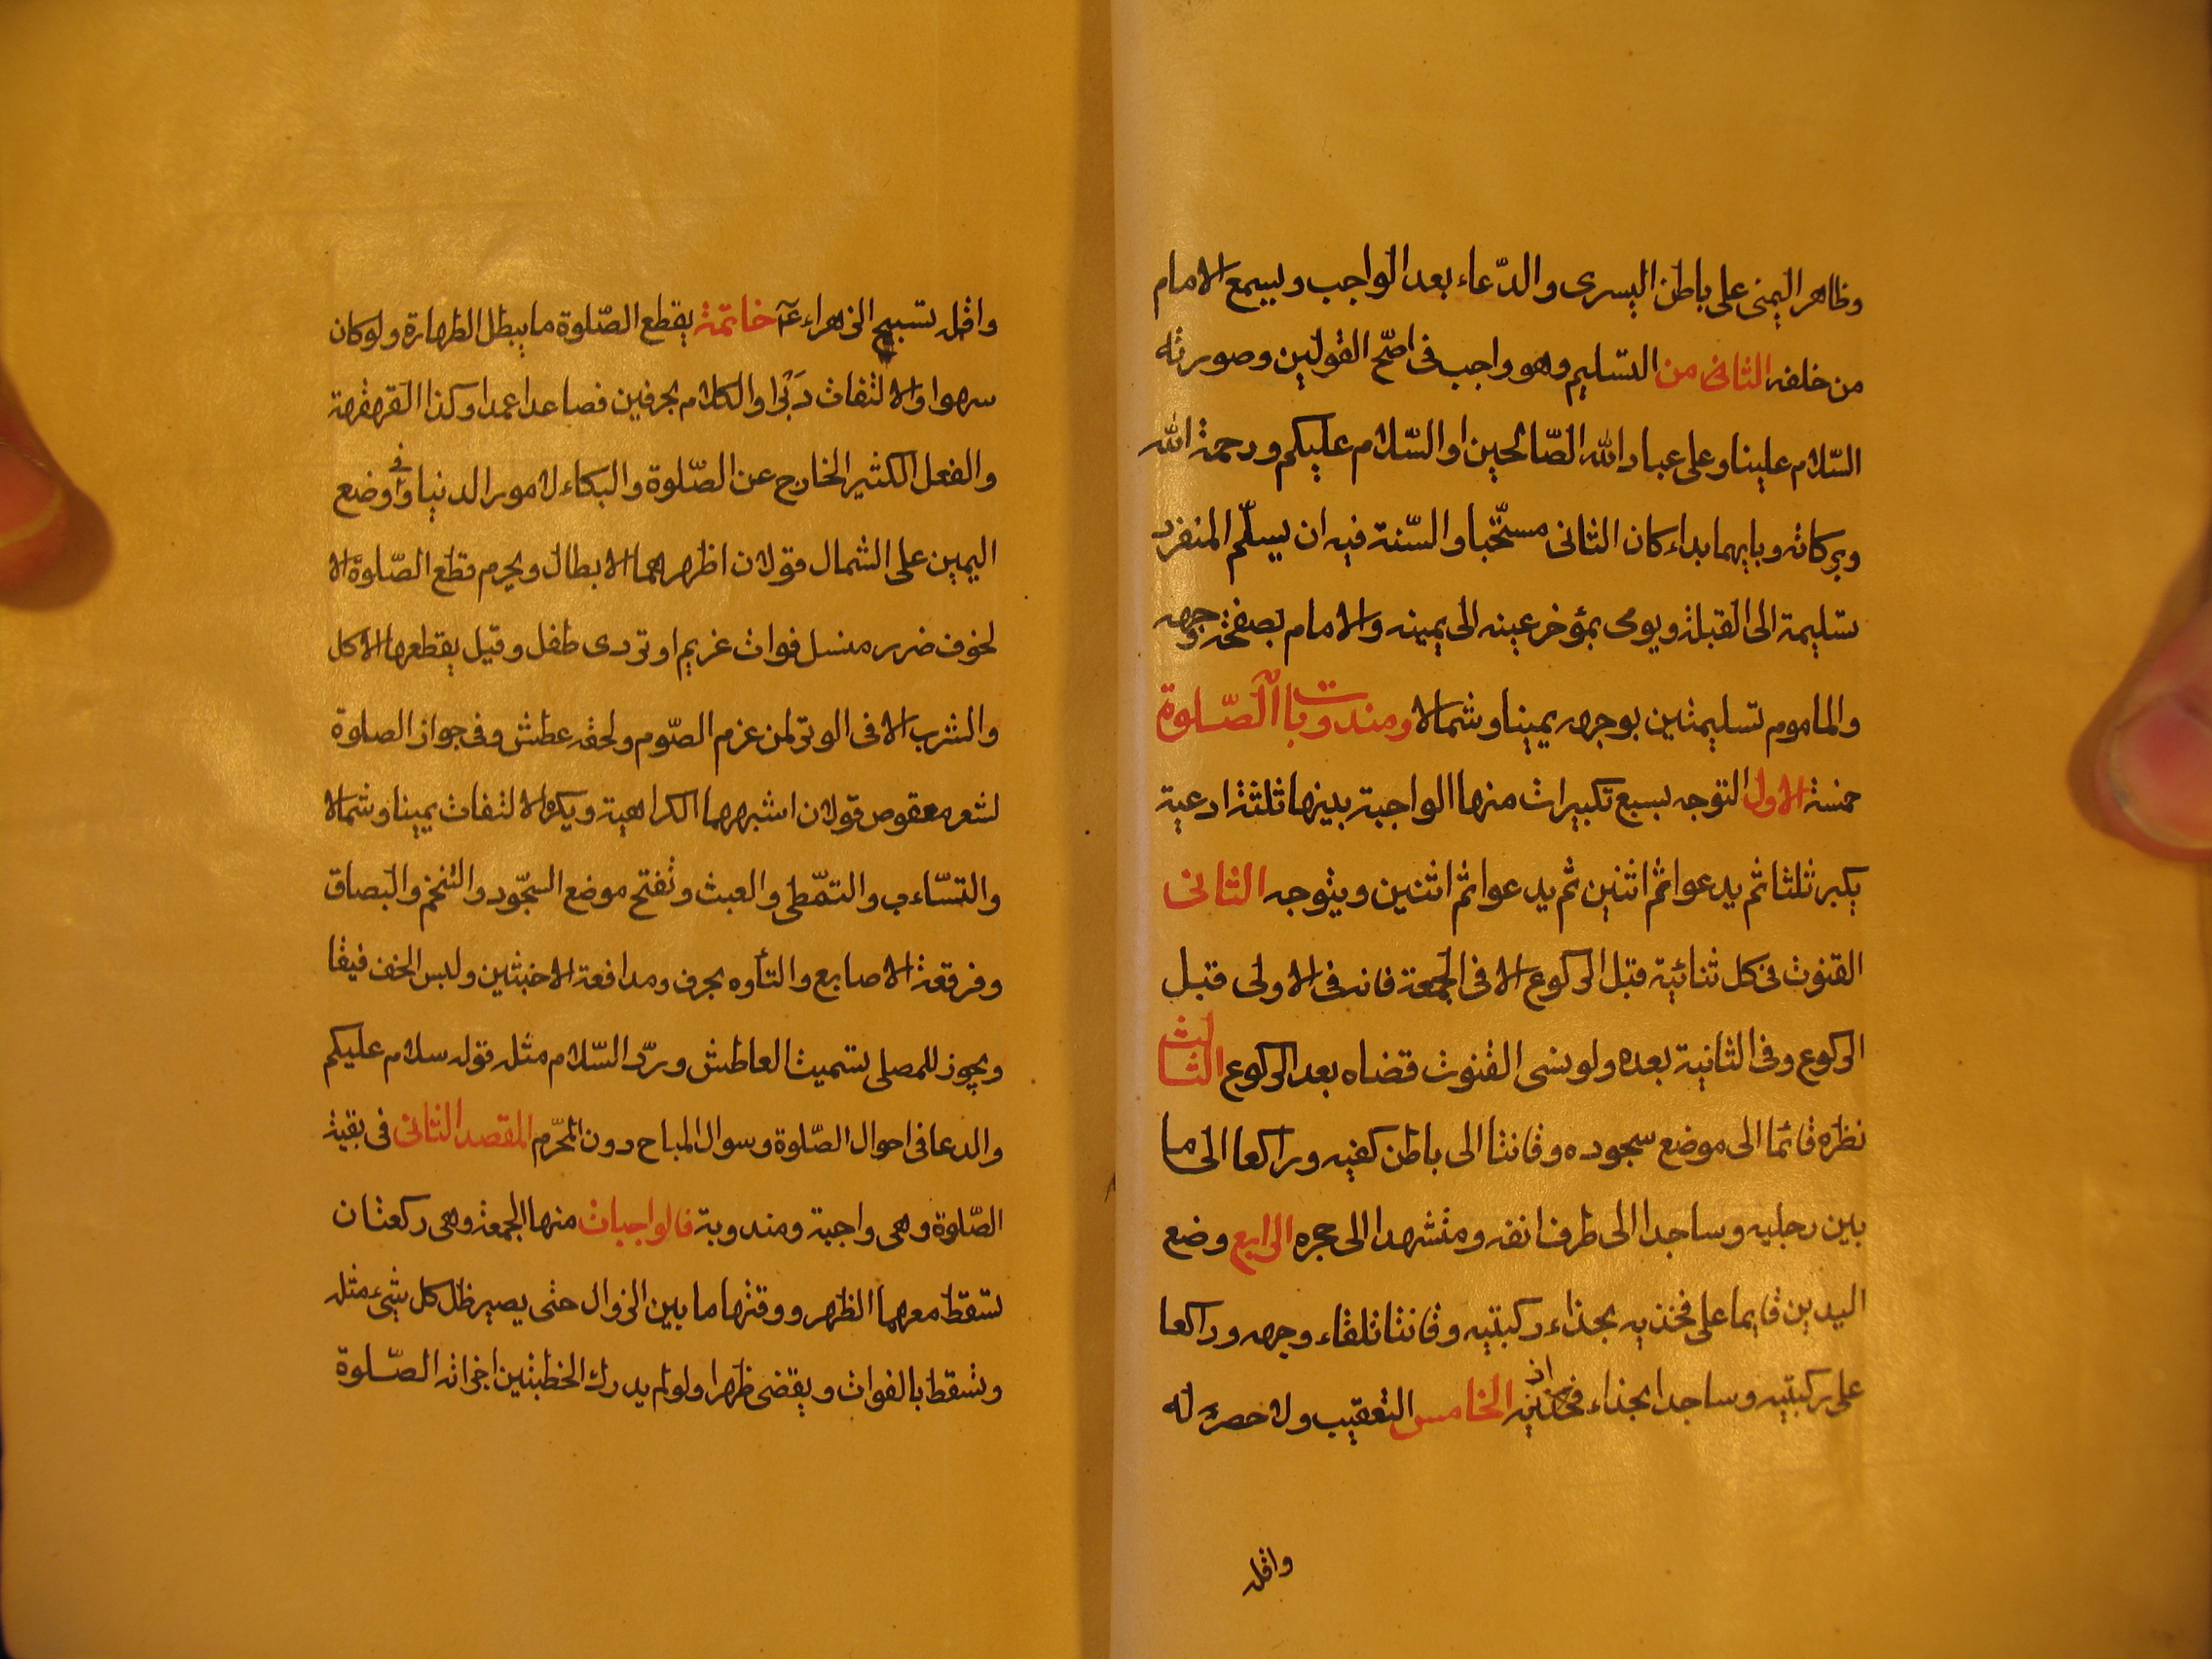 وظاهر اليمنى على باطن اليسرى والدّعاء بعد الواجب ويسمع الامام
من خلفه الثانى من التسليم وهو واجب فى اصحّ القولين وصورته
السّلام علينا وعلى عباد الله الصّالحين او السّلام عليكم ورحمة الله
وبركاته وبايهما بداء كان الثانى مستحّبا والسّنة فيه ان يسلّم المنفرد
تسليمة الى القبلة ويومى بمؤخر عينه الى يمينه والامام بصفحة وجهه
والماموم تسليمتين بوجهه يمينا وشمالا ومندوبات الصّلوة
خمسة الاول التوجه بسبع تكبيرات منها الواجبة بينها ثلثة ادعية
يكبر ثلثا ثم يدعوا ثم اثنين ثم يدعوا ثم اثنين ويتوجه الثانى
القنوت فى كل ثنائية قبل الركوع الا فى الجمعة فانه فى الاولى قبل
الركوع وفى الثانية بعده ولو نسى القنوت قضاه بعد الركوع الثالث
نظره قائما الى موضع سجوده وقانتا الى باطن كفيه وراكعا الى ما
بين رجليه وساجدا الى طرف انفه ومتشهدا الى حجره الرابع وضع
اليدين قايما على فخذيه بحذاء ركبتيه وقانتا تلقاء وجهه وراكعا
على ركبتيه وساجدا بحذاء اذنيه الخامس التعقيب ولا حصر له
وافله
وافله تسبيح الزهراء عَ خاتمة يقطع الصّلوة ما يبطل الطهارة ولو كان
سهوا والالتفات دَبْرًا والكلام بحرفين فصاعدا عمدا وكذا القهقهة
والفعل الكثير الخارج عن الصّلوة والبكاء لامور الدنيا وفى وضع
اليمين على الشمال قولان اظهرهما الابطال ويحرم قطع الصّلوة الا
لخوف ضرر مثل فوات غريم او تردى طفل وقيل يقطعها الاكل
والشرب الا فى الوتر لمن عزم الصّوم ولحقه عطش وفى جواز الصلوة
لشعر معقوص قولان اشبههما الكراهية ويكره الالتفات يمينا وشمالا
والتثّاءب والتمّطى والعبث ونفتح موضع السّجود والتنخم والبصاق
وفرقعة الاصابع والتأوه بحرف ومدافعة الاخبثين ولبس الخف ضيقا
ويجوز للمصلى تسميت العاطش وردّ السّلام مثله قوله سلام عليكم
والدعا فى احوال الصّلوة وسوال المباح دون المحرّم المقصد الثانى فى بقية
الصّلوة وهى واجبة ومندوبة فالواجبات منها الجمعة وهى ركعتان
تسقط معهما الظهر ووقتها ما بين الزوال حتى يصير ظل كل شىء مثله
وتسقط بالفوات ويقضى ظهرا ولو لم يدرك الخطبتين اجزاته الصّلوة